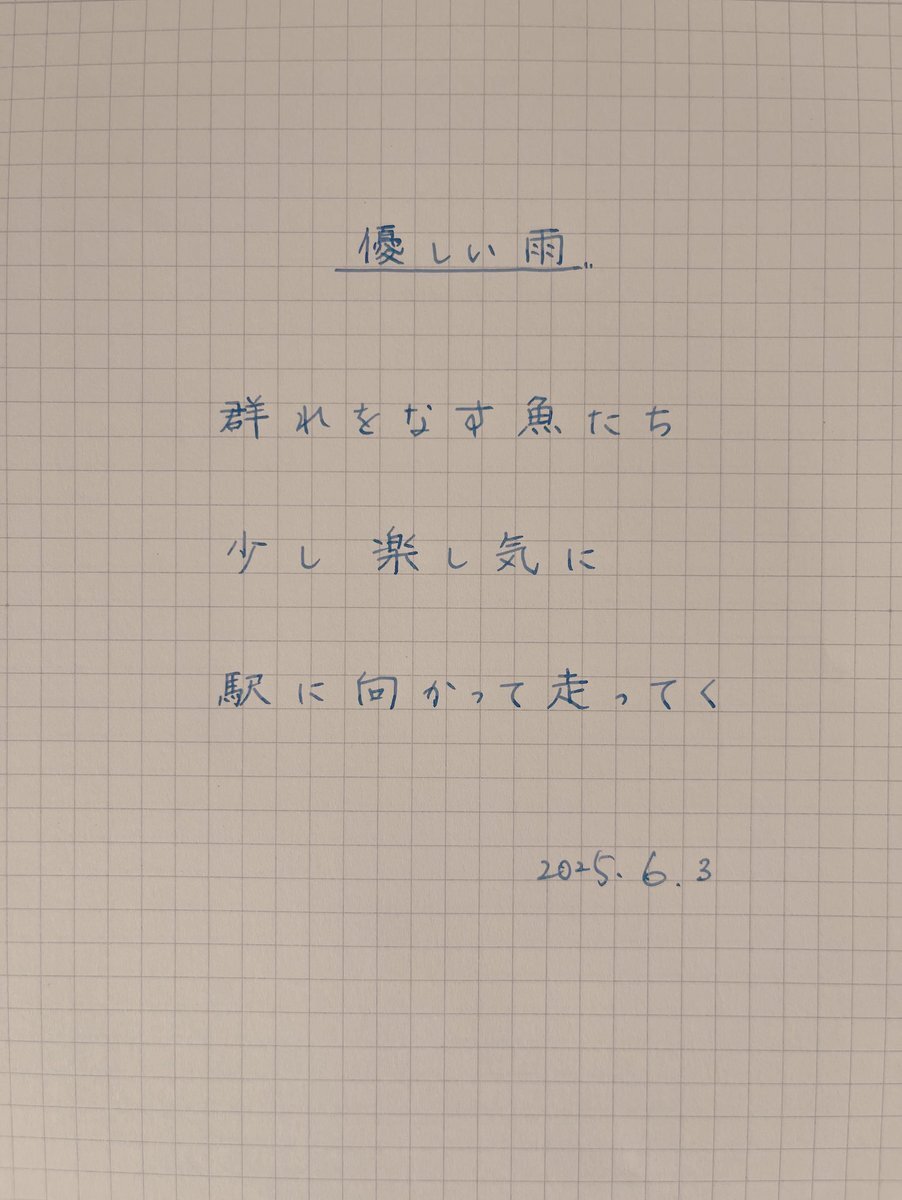 優しい雨
群れをなす魚たち
少し楽し気に
駅に向かって走ってく
2025.6.3